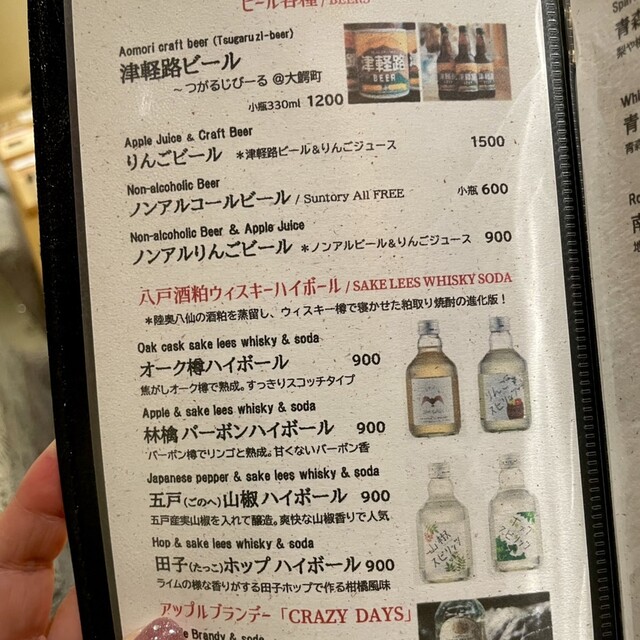 ビール各種 / BEERS
Aomori craft beer (Tsugaruzi-beer)
津軽路ビール
～つがるじびーる @大鰐町
小瓶330ml 1200
津軽路
BEER
Apple Juice & Craft Beer
りんごビール *津軽路ビール&りんごジュース 1500
Non-alcoholic Beer
ノンアルコールビール / Suntory All FREE 小瓶 600
Non-alcoholic Beer & Apple Juice
ノンアルりんごビール *ノンアルビール&りんごジュース 900
八戸酒粕ウィスキーハイボール / SAKE LEES WHISKY SODA
*陸奥八仙の酒粕を蒸留し、ウィスキー樽で寝かせた粕取り焼酎の進化版！
Oak cask sake lees whisky & soda
オーク樽ハイボール 900
焦がしオーク樽で熟成。すっきりスコッチタイプ
Apple & sake lees whisky & soda
林檎 バーボンハイボール 900
バーボン樽でリンゴと熟成。甘くないバーボン香
Japanese pepper & sake lees whisky & soda
五戸(ごのへ)山椒 ハイボール 900
五戸産実山椒を入れて醸造。爽快な山椒香りで人気
Hop & sake lees whisky & soda
田子(たっこ)ホップ ハイボール 900
ライムの様な香りがする田子ホップで作る柑橘風味
りんご
スピリッツ
山椒
スピリッツ
ホップ
スピリッツ
アップルブランデー「CRAZY DAYS」
Brandy & soda
青
青
南